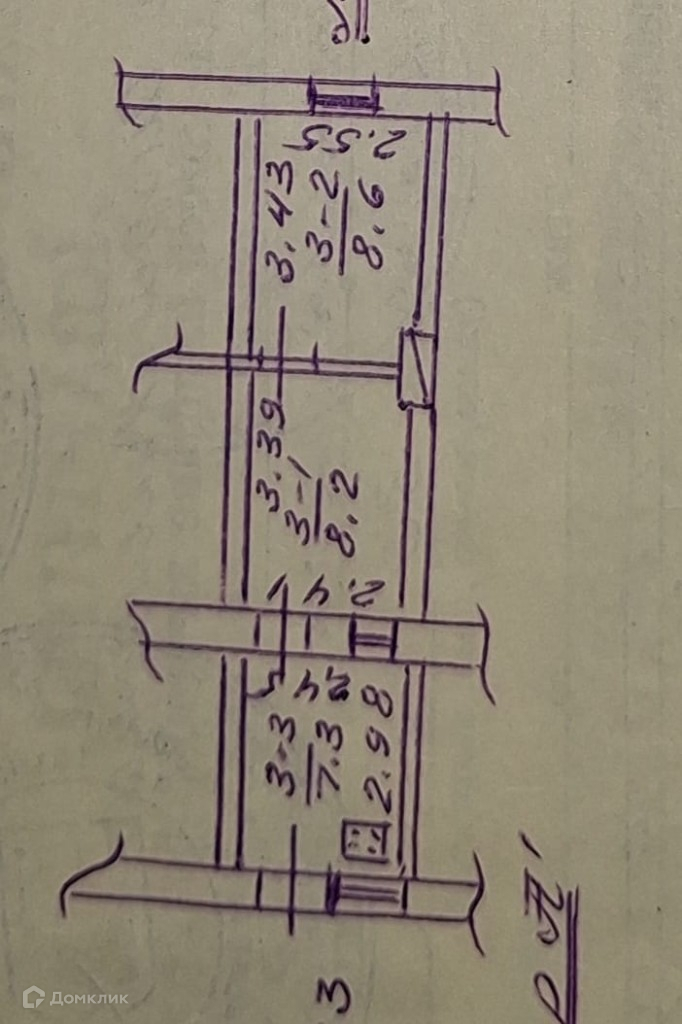 2.55
3.43
3-2
8.6
3.39
3-1
8.2
2.41
2.45
3-3
7.3
2.98
3
Домклик